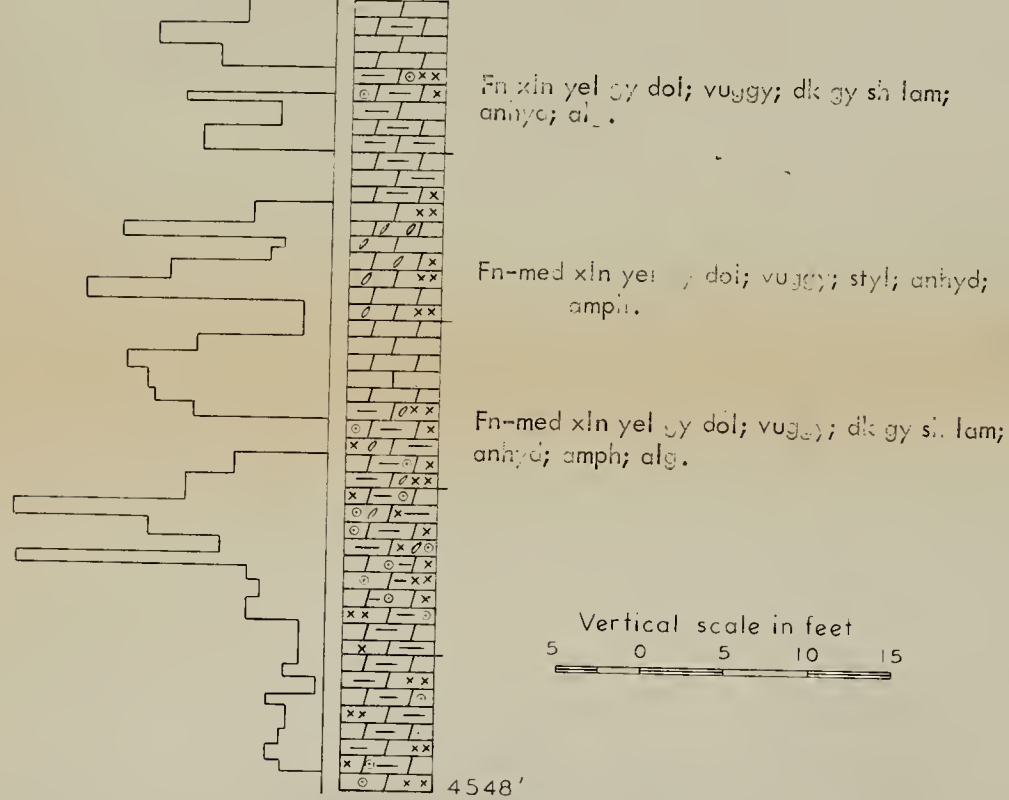 Fn xln yel gy dol; vuggy; dk gy sh lam;
anhyd; alg.
Fn-med xln yel dol; vuggy; styl; anhyd;
amph.
Fn-med xln yel gy dol; vuggy; dk gy sh lam;
anhyd; amph; alg.
Vertical scale in feet
5 0 5 10 15
4548'